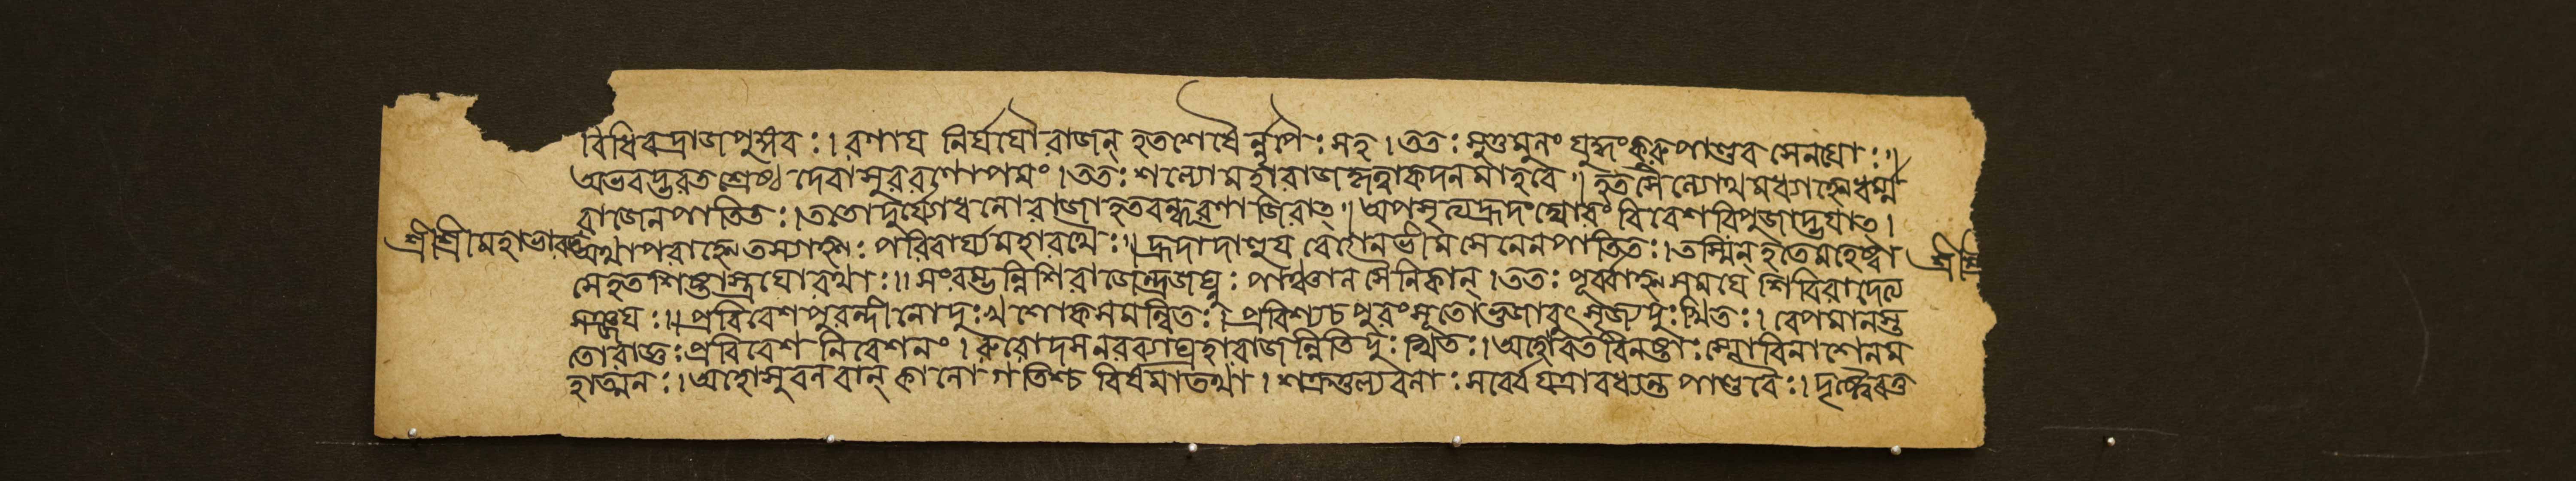 বিধিবদ্রাজপুঙ্গব:। রণায় নির্যযৌরাজন্ হতশেষৈর্নৃপৈ: সহ। তত: সুতুমুলং যুদ্ধংকুরুপাণ্ডব সেনয়ো:॥
অভবদ্ভরতশ্রেষ্ঠ দেবাসুররণোপমং। তত: শল্যোমহারাজকৃত্বাকদনমাহবে॥ হতসৈন্যোথমধ্যাহ্নেধর্ম্ম
রাজেনপাতিত:। ততোদুর্যোধনোরাজাহতবন্ধূরণাজিরাত্॥ অপসৃত্যহ্রদংঘোরং বিবেশরিপুজাদ্ভয়াত।
শ্রীশ্রীমহাভারত
অথাপরাহ্নেতস্যাহ্ন: পরিবার্য্যমহারথৈ:॥ হ্রদাদাহূয় বেগেনভীমসেনেনপাতিত:। তস্মিন্ হতেমহেষ্বা
শ্রীশ্রী
সেহতশিষ্টাস্ত্রয়োরথা:॥ সংরম্ভান্নিশিরাজেন্দ্রজঘ্নু: পাঞ্চালসৈনিকান্। তত: পূর্ব্বাহ্নসময়ে শিবিরাদেত্য
সঞ্জয়:॥ প্রবিবেশপুরন্দীনোদু:খশোকসমন্বিত:॥ প্রবিশ্যচপুরংসূতোভুজাবুৎসৃজ্যদু:খিত:। বেপমানস্ত
তোরাজ্ঞ:প্রবিবেশ নিবেশনং। রুরোদসনরব্যাঘ্রহারাজন্নিতিদু:খিত:। অহোবতবিনষ্টা:স্মোবিনাশেনম
হাত্মন:। অহোসুবলবান্ কালোগতিশ্চ বিষমাতথা। শক্রতুল্যবলা: সর্ব্বেযত্রাবধ্যন্ত পাণ্ডবৈ:। দৃষ্ট্বৈবত